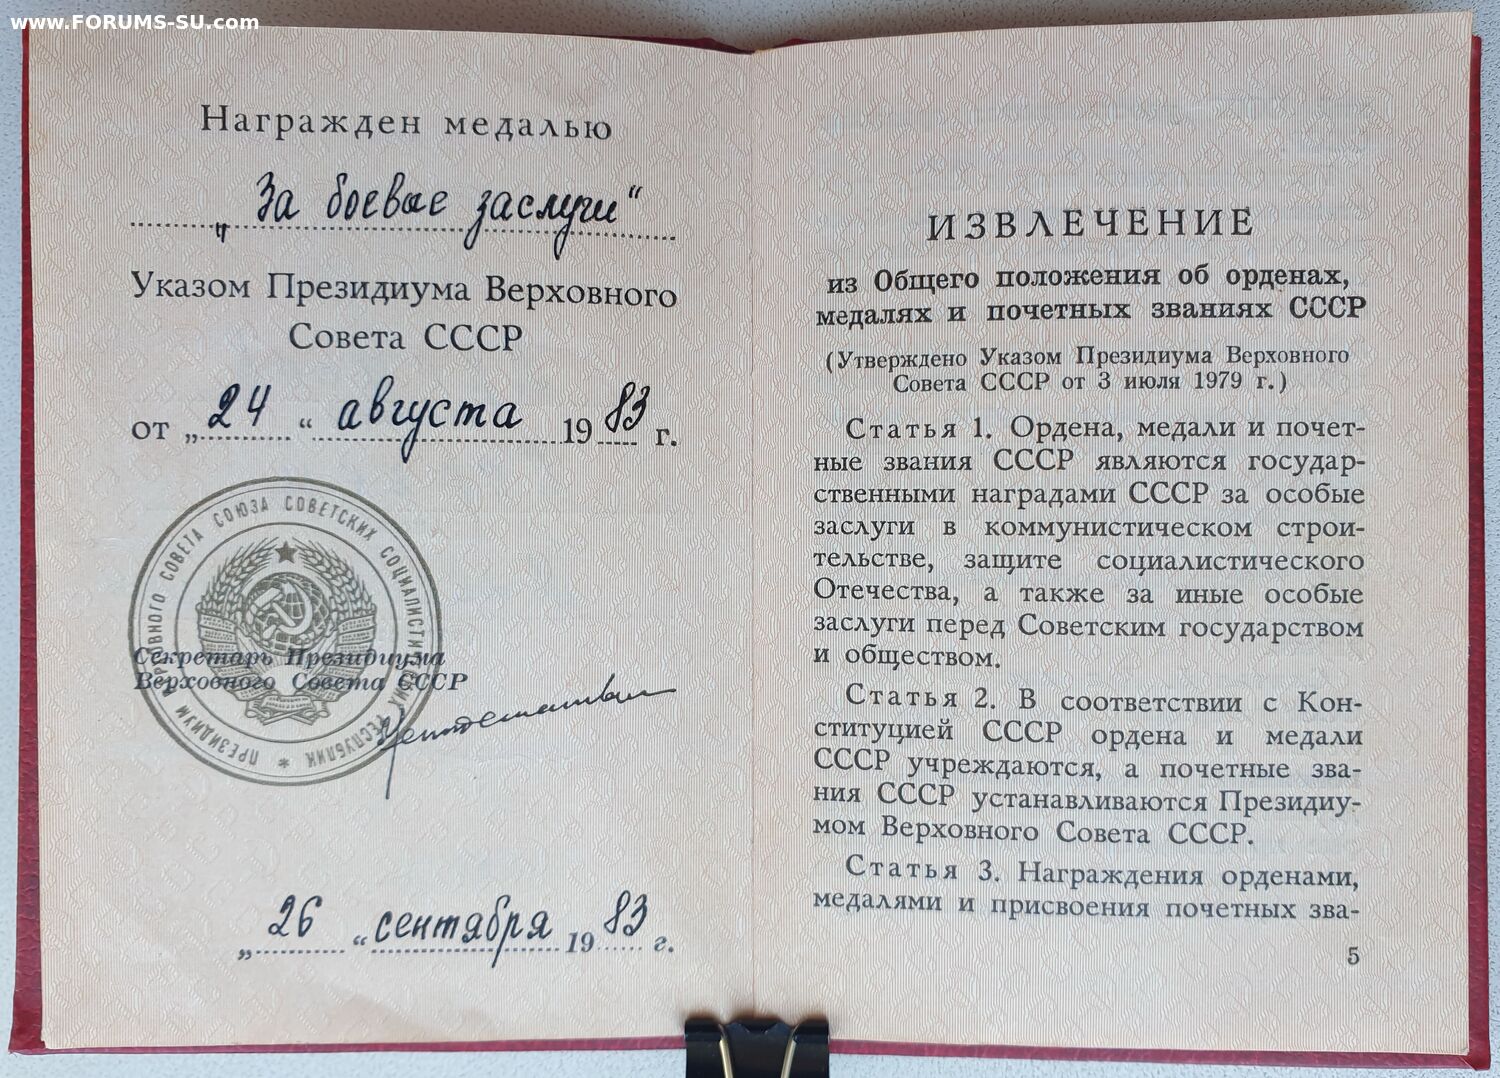 www.FORUMS-SU.com
Награжден медалью
„За боевые заслуги“
Указом Президиума Верховного
Совета СССР
от „24“ августа 1983 г.
ПРЕЗИДИУМ ВЕРХОВНОГО СОВЕТА СОЮЗА СОВЕТСКИХ СОЦИАЛИСТИЧЕСКИХ РЕСПУБЛИК *
Секретарь Президиума
Верховного Совета СССР
„26“ сентября 1983 г.
ИЗВЛЕЧЕНИЕ
из Общего положения об орденах,
медалях и почетных званиях СССР
(Утверждено Указом Президиума Верховного
Совета СССР от 3 июля 1979 г.)
Статья 1. Ордена, медали и почет-
ные звания СССР являются государ-
ственными наградами СССР за особые
заслуги в коммунистическом строи-
тельстве, защите социалистического
Отечества, а также за иные особые
заслуги перед Советским государством
и обществом.
Статья 2. В соответствии с Кон-
ституцией СССР ордена и медали
СССР учреждаются, а почетные зва-
ния СССР устанавливаются Президиу-
мом Верховного Совета СССР.
Статья 3. Награждения орденами,
медалями и присвоения почетных зва-
5